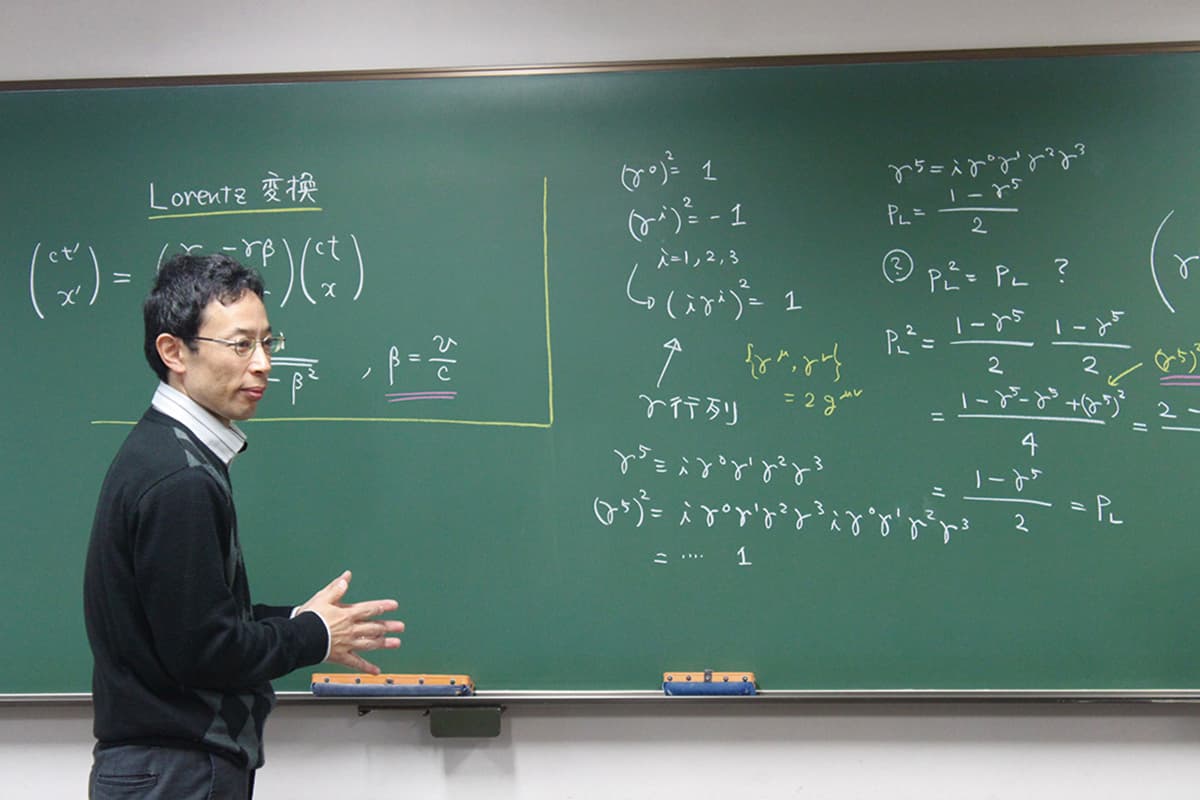 Lorentz 変換
(ct' x') = (γ -γβ) (ct x)
-β² , β = v/c
(γ⁰)² = 1
(γⁱ)² = -1
i=1,2,3
(iγⁱ)² = 1
γ行列
{γ^μ, γ^ν}
= 2 g^μν
γ⁵ ≡ iγ⁰γ¹γ²γ³
(γ⁵)² = iγ⁰γ¹γ²γ³iγ⁰γ¹γ²γ³
= ···· 1
γ⁵ = iγ⁰γ¹γ²γ³
P_L = (1-γ⁵)/2
? P_L² = P_L ?
P_L² = (1-γ⁵)/2 (1-γ⁵)/2
= (1-γ⁵-γ⁵+(γ⁵)²)/4 = 2-
= (1-γ⁵)/2 = P_L
(γ⁵)²
(γ